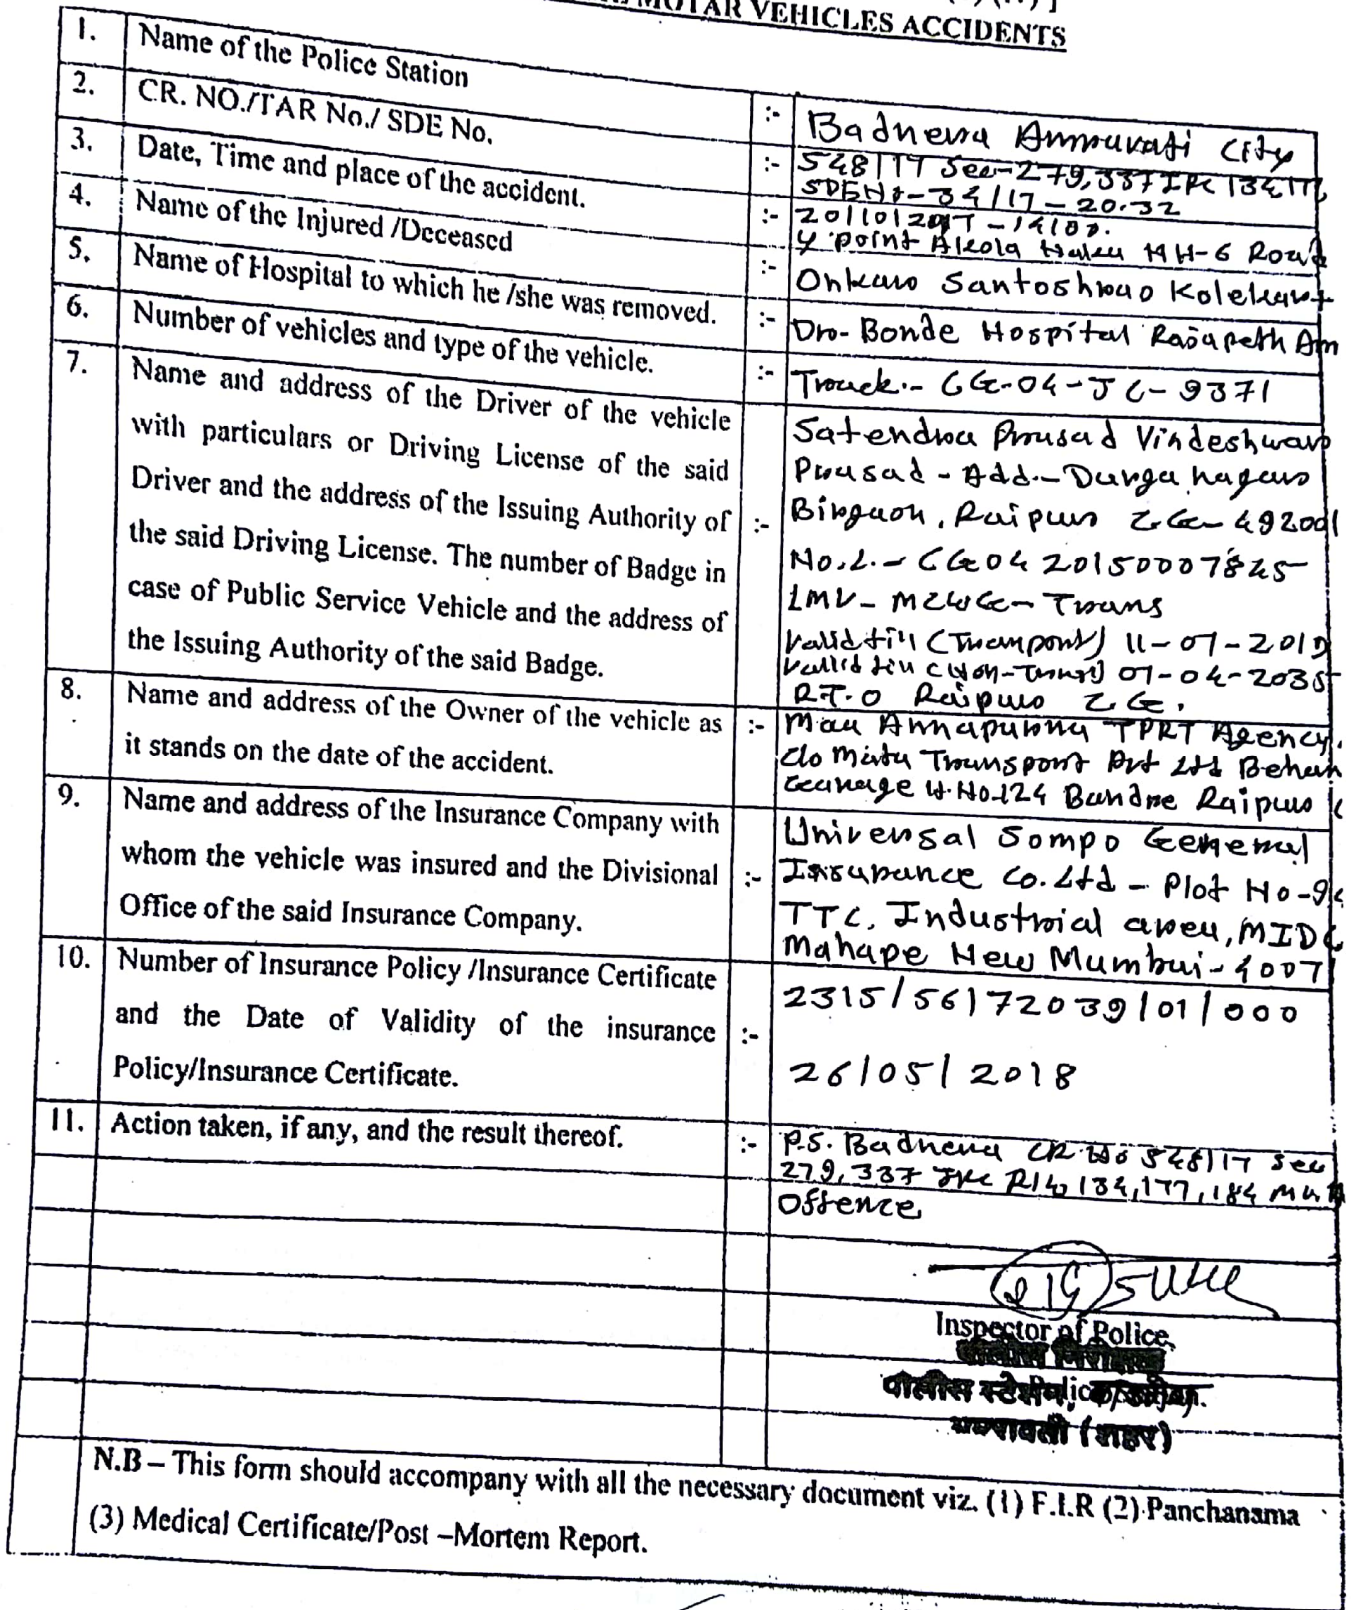 MOTAR VEHICLES ACCIDENTS
1. Name of the Police Station :- Badnera Amravati City
2. CR. NO./TAR No./ SDE No. :- 548/17 Sec-279,337 IPC 134,177
SDENo-34/17-20.32
3. Date, Time and place of the accident. :- 20/10/2017-14/00.
Y point Akola Naka NH-6 Road
4. Name of the Injured /Deceased :- Onkar Santoshrao Kolekar
5. Name of Hospital to which he /she was removed. :- Dr- Bonde Hospital Rajapeth Am
6. Number of vehicles and type of the vehicle. :- Truck.- CG-04-JC-9371
7. Name and address of the Driver of the vehicle
with particulars or Driving License of the said
Driver and the address of the Issuing Authority of
the said Driving License. The number of Badge in
case of Public Service Vehicle and the address of
the Issuing Authority of the said Badge.
:- Satendra Prasad Vindeshwar
Prasad - Add.- Durga nagar
Birgaon, Raipur C.G- 492001
No.L.- CG04 20150007845
LMV- MCWG- Trans
Valid till (Transport) 11-07-201
Valid till (Non-Trans) 07-04-2035
R.T.O Raipur C.G.
8. Name and address of the Owner of the vehicle as
it stands on the date of the accident.
:- Maa Annapurna TPRT Agency.
C/o Mata Transport Pvt Ltd Behan
Garage H.No-124 Raipur
9. Name and address of the Insurance Company with
whom the vehicle was insured and the Divisional
Office of the said Insurance Company.
:- Universal Sompo General
Insurance Co. Ltd - Plot No-9
TTC, Industrial area, MIDC
Mahape New Mumbai-4007
10. Number of Insurance Policy /Insurance Certificate
and the Date of Validity of the insurance
Policy/Insurance Certificate.
:- 2315/56172039/01/000
26/05/2018
11. Action taken, if any, and the result thereof. :- P.S. Badnera CR No 548/17 Sec
279, 337 IPC R/w, 134,177,184
Offence
Inspector of Police,
पोलीस निरीक्षक
पोलीस स्टेशन,
अमरावती (शहर)
N.B – This form should accompany with all the necessary document viz. (1) F.I.R (2) Panchanama
(3) Medical Certificate/Post –Mortem Report.